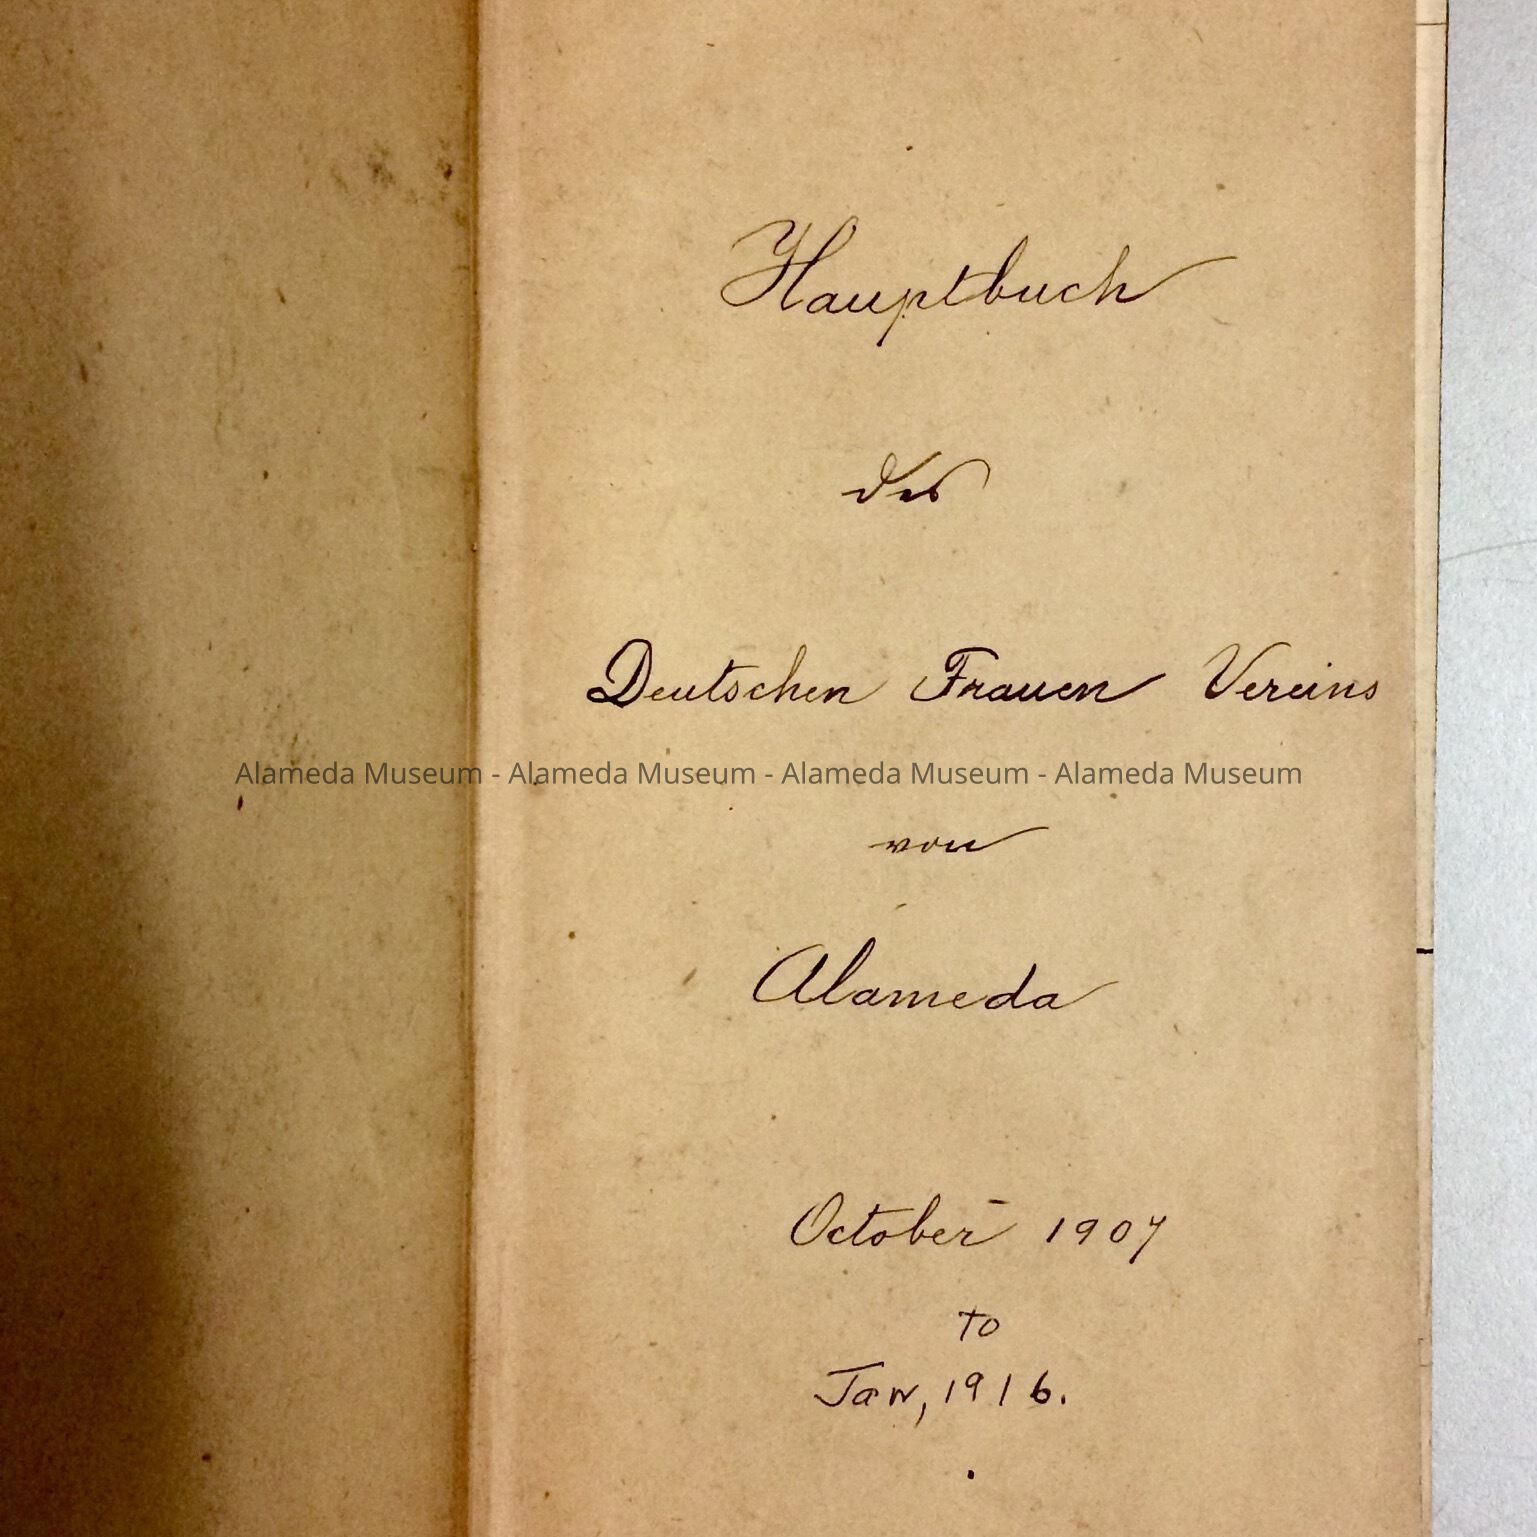 Hauptbuch
des
Deutschen Frauen Vereins
Alameda Museum - Alameda Museum - Alameda Museum - Alameda Museum
von
Alameda
October 1907
to
Jan, 1916.